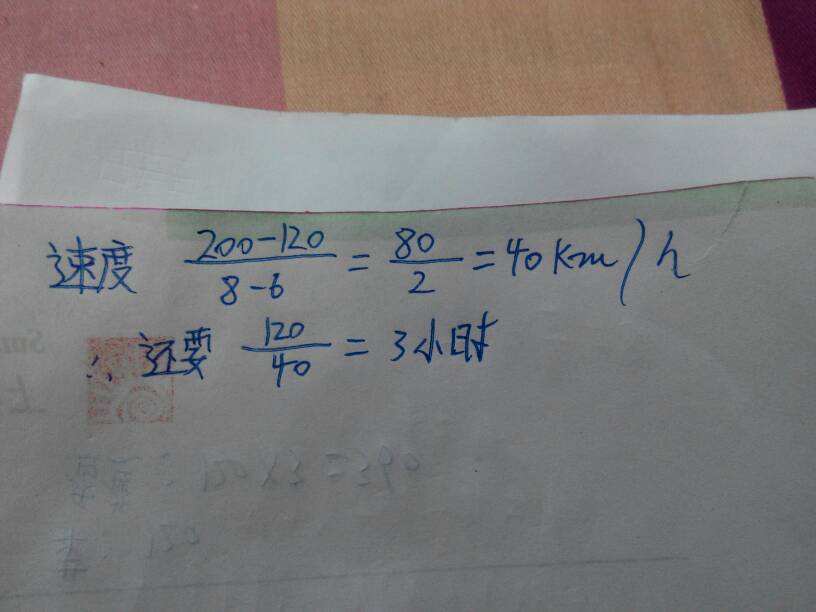 速度 200-120 / 8-6 = 80 / 2 = 40 Km/h
∴ 还要 120 / 40 = 3小时